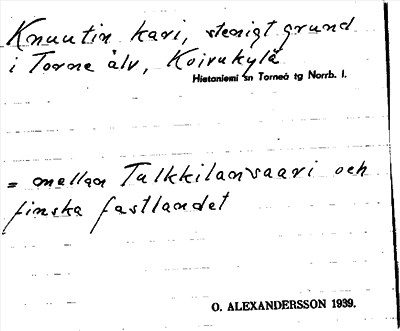 Knuutin kari, stenigt grund
i Torne älv, Koivukylä
Hietaniemi sn Torneå tg Norrb. l.
= mellan Tulkkilansaari och
finska fastlandet
O. ALEXANDERSSON 1939.